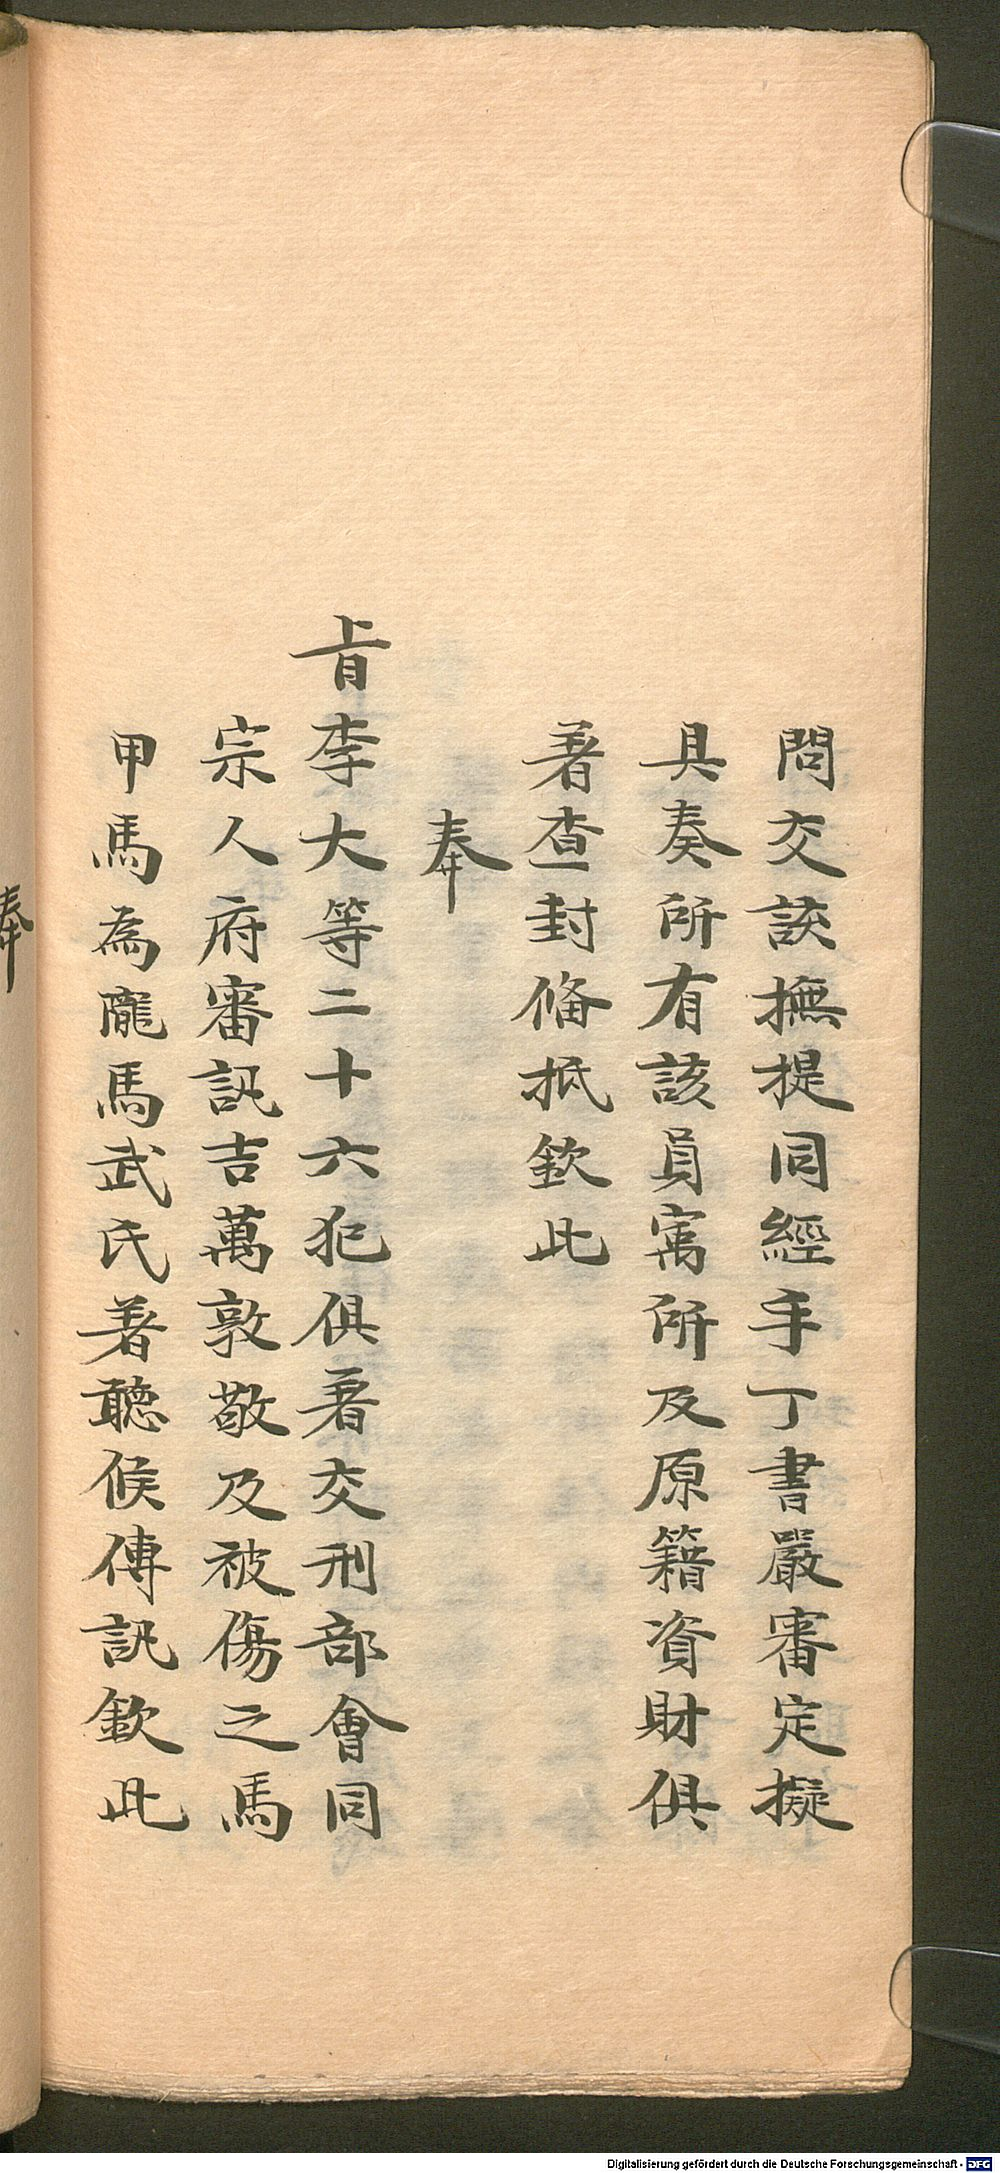 問交該撫提同經手丁書嚴審定擬
具奏所有該員寓所及原籍資財俱
著查封備抵欽此
奉
旨李大等二十六犯俱著交刑部會同
宗人府審訊吉萬敦敬及被傷之馬
甲馬為龐馬武氏著聽候傳訊欽此
奉
Digitalisierung gefördert durch die Deutsche Forschungsgemeinschaft - DFG